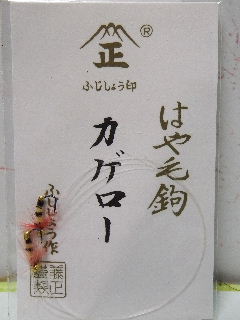 正
®
ふじしょう印
はや毛鉤
カゲロー
ふじしょう作